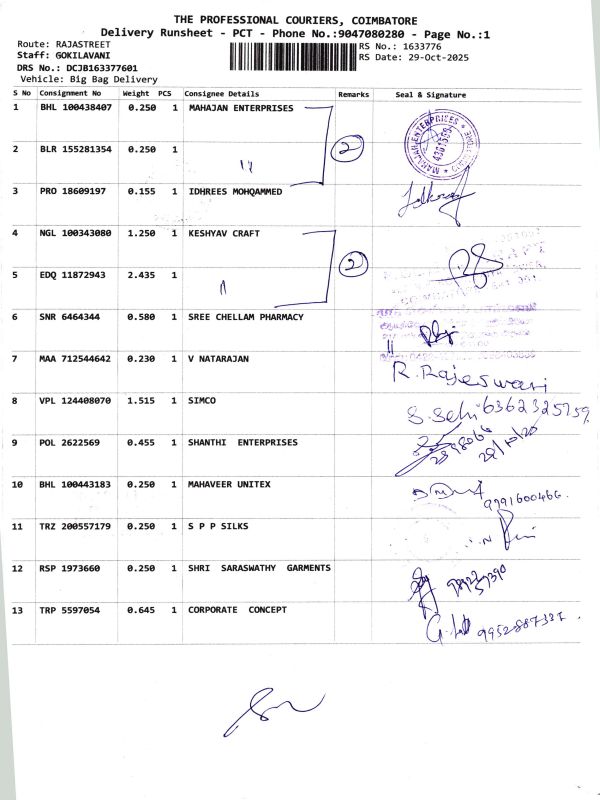 THE PROFESSIONAL COURIERS, COIMBATORE
Delivery Runsheet - PCT - Phone No.:9047080280 - Page No.:1
Route: RAJASTREET
RS No.: 1633776
Staff: GOKILAVANI
RS Date: 29-Oct-2025
DRS No.: DCJB163377601
Vehicle: Big Bag Delivery
S No Consignment No Weight PCS Consignee Details Remarks Seal & Signature
1 BHL 100438407 0.250 1 MAHAJAN ENTERPRISES
2 BLR 155281354 0.250 1 2
3 PRO 18609197 0.155 1 IDHREES MOHQAMMED
4 NGL 100343080 1.250 1 KESHYAV CRAFT
5 EDQ 11872943 2.435 1 2
6 SNR 6464344 0.580 1 SREE CHELLAM PHARMACY
7 MAA 712544642 0.230 1 V NATARAJAN R. Rajeswari
8 VPL 124408070 1.515 1 SIMCO
9 POL 2622569 0.455 1 SHANTHI ENTERPRISES
10 BHL 100443183 0.250 1 MAHAVEER UNITEX 9791600466.
11 TRZ 200557179 0.250 1 S P P SILKS
12 RSP 1973660 0.250 1 SHRI SARASWATHY GARMENTS
13 TRP 5597054 0.645 1 CORPORATE CONCEPT